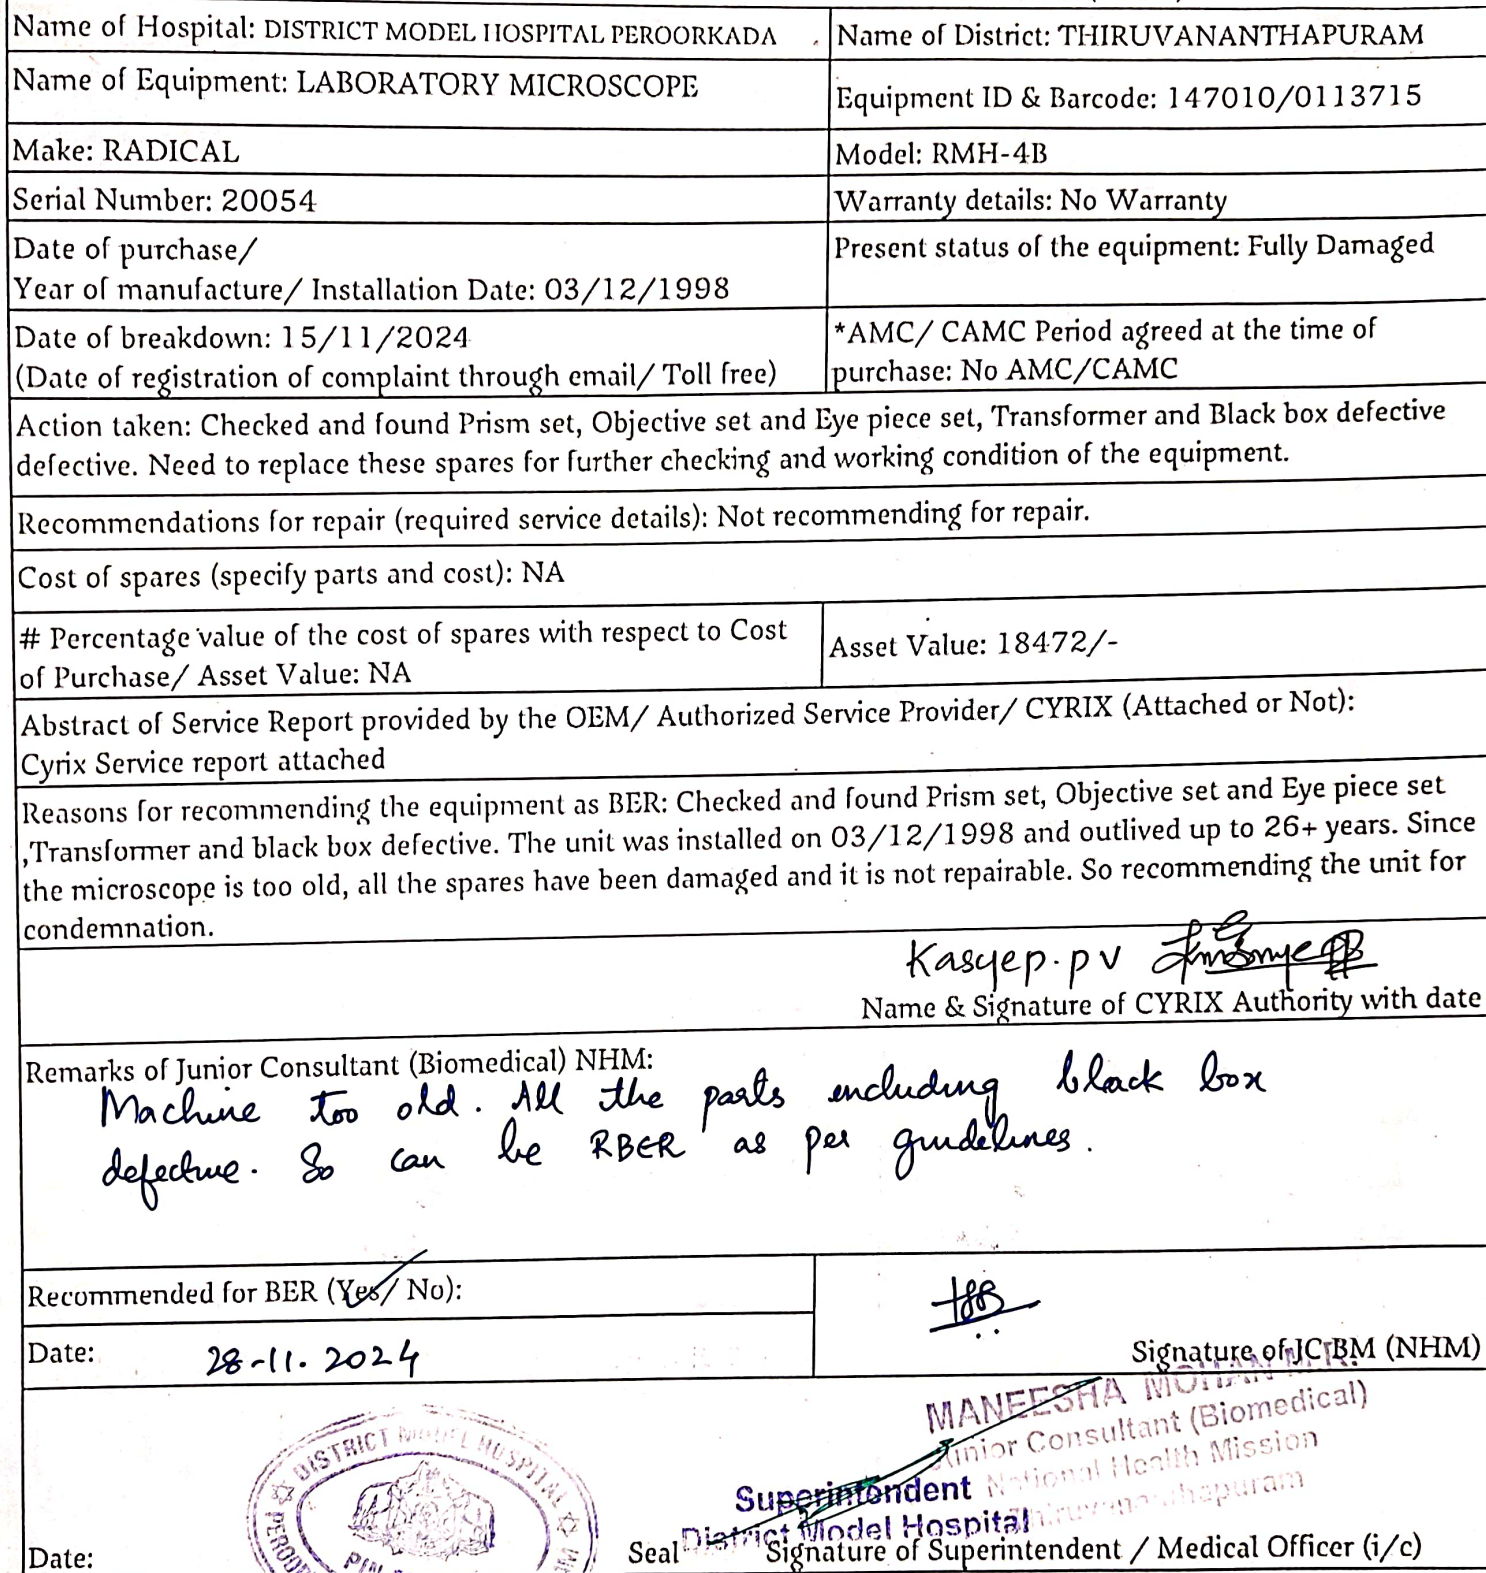 Name of Hospital: DISTRICT MODEL HOSPITAL PEROORKADA
Name of District: THIRUVANANTHAPURAM
Name of Equipment: LABORATORY MICROSCOPE
Equipment ID & Barcode: 147010/0113715
Make: RADICAL
Model: RMH-4B
Serial Number: 20054
Warranty details: No Warranty
Date of purchase/
Year of manufacture/ Installation Date: 03/12/1998
Present status of the equipment: Fully Damaged
Date of breakdown: 15/11/2024
(Date of registration of complaint through email/ Toll free)
*AMC/ CAMC Period agreed at the time of
purchase: No AMC/CAMC
Action taken: Checked and found Prism set, Objective set and Eye piece set, Transformer and Black box defective
defective. Need to replace these spares for further checking and working condition of the equipment.
Recommendations for repair (required service details): Not recommending for repair.
Cost of spares (specify parts and cost): NA
# Percentage value of the cost of spares with respect to Cost
of Purchase/ Asset Value: NA
Asset Value: 18472/-
Abstract of Service Report provided by the OEM/ Authorized Service Provider/ CYRIX (Attached or Not):
Cyrix Service report attached
Reasons for recommending the equipment as BER: Checked and found Prism set, Objective set and Eye piece set
,Transformer and black box defective. The unit was installed on 03/12/1998 and outlived up to 26+ years. Since
the microscope is too old, all the spares have been damaged and it is not repairable. So recommending the unit for
condemnation.
Kasyep. p v
Name & Signature of CYRIX Authority with date
Remarks of Junior Consultant (Biomedical) NHM:
Machine too old. All the parts including black box
defective. So can be RBER as per guidelines.
Recommended for BER (Yes/ No):
Date: 28-11. 2024
Signature of JC BM (NHM)
MANEESHA MOHAN
Junior Consultant (Biomedical)
National Health Mission
Thiruvananthapuram
DISTRICT MODEL HOSPITAL
Superintendent
District Model Hospital
Date:
Seal
Signature of Superintendent / Medical Officer (i/c)